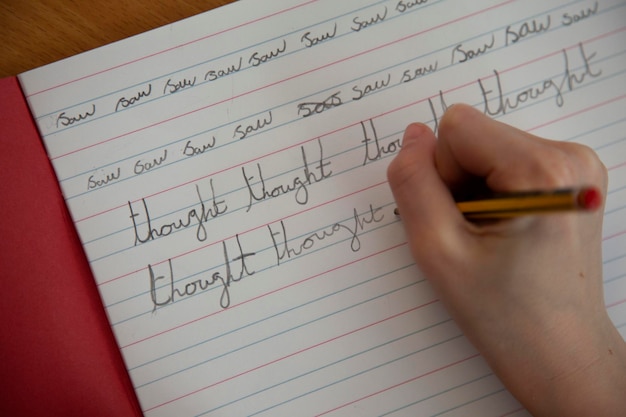 saw saw saw saw saw saw saw saw
saw saw saw saw saw saw saw saw saw
thought thought thought
thought thought